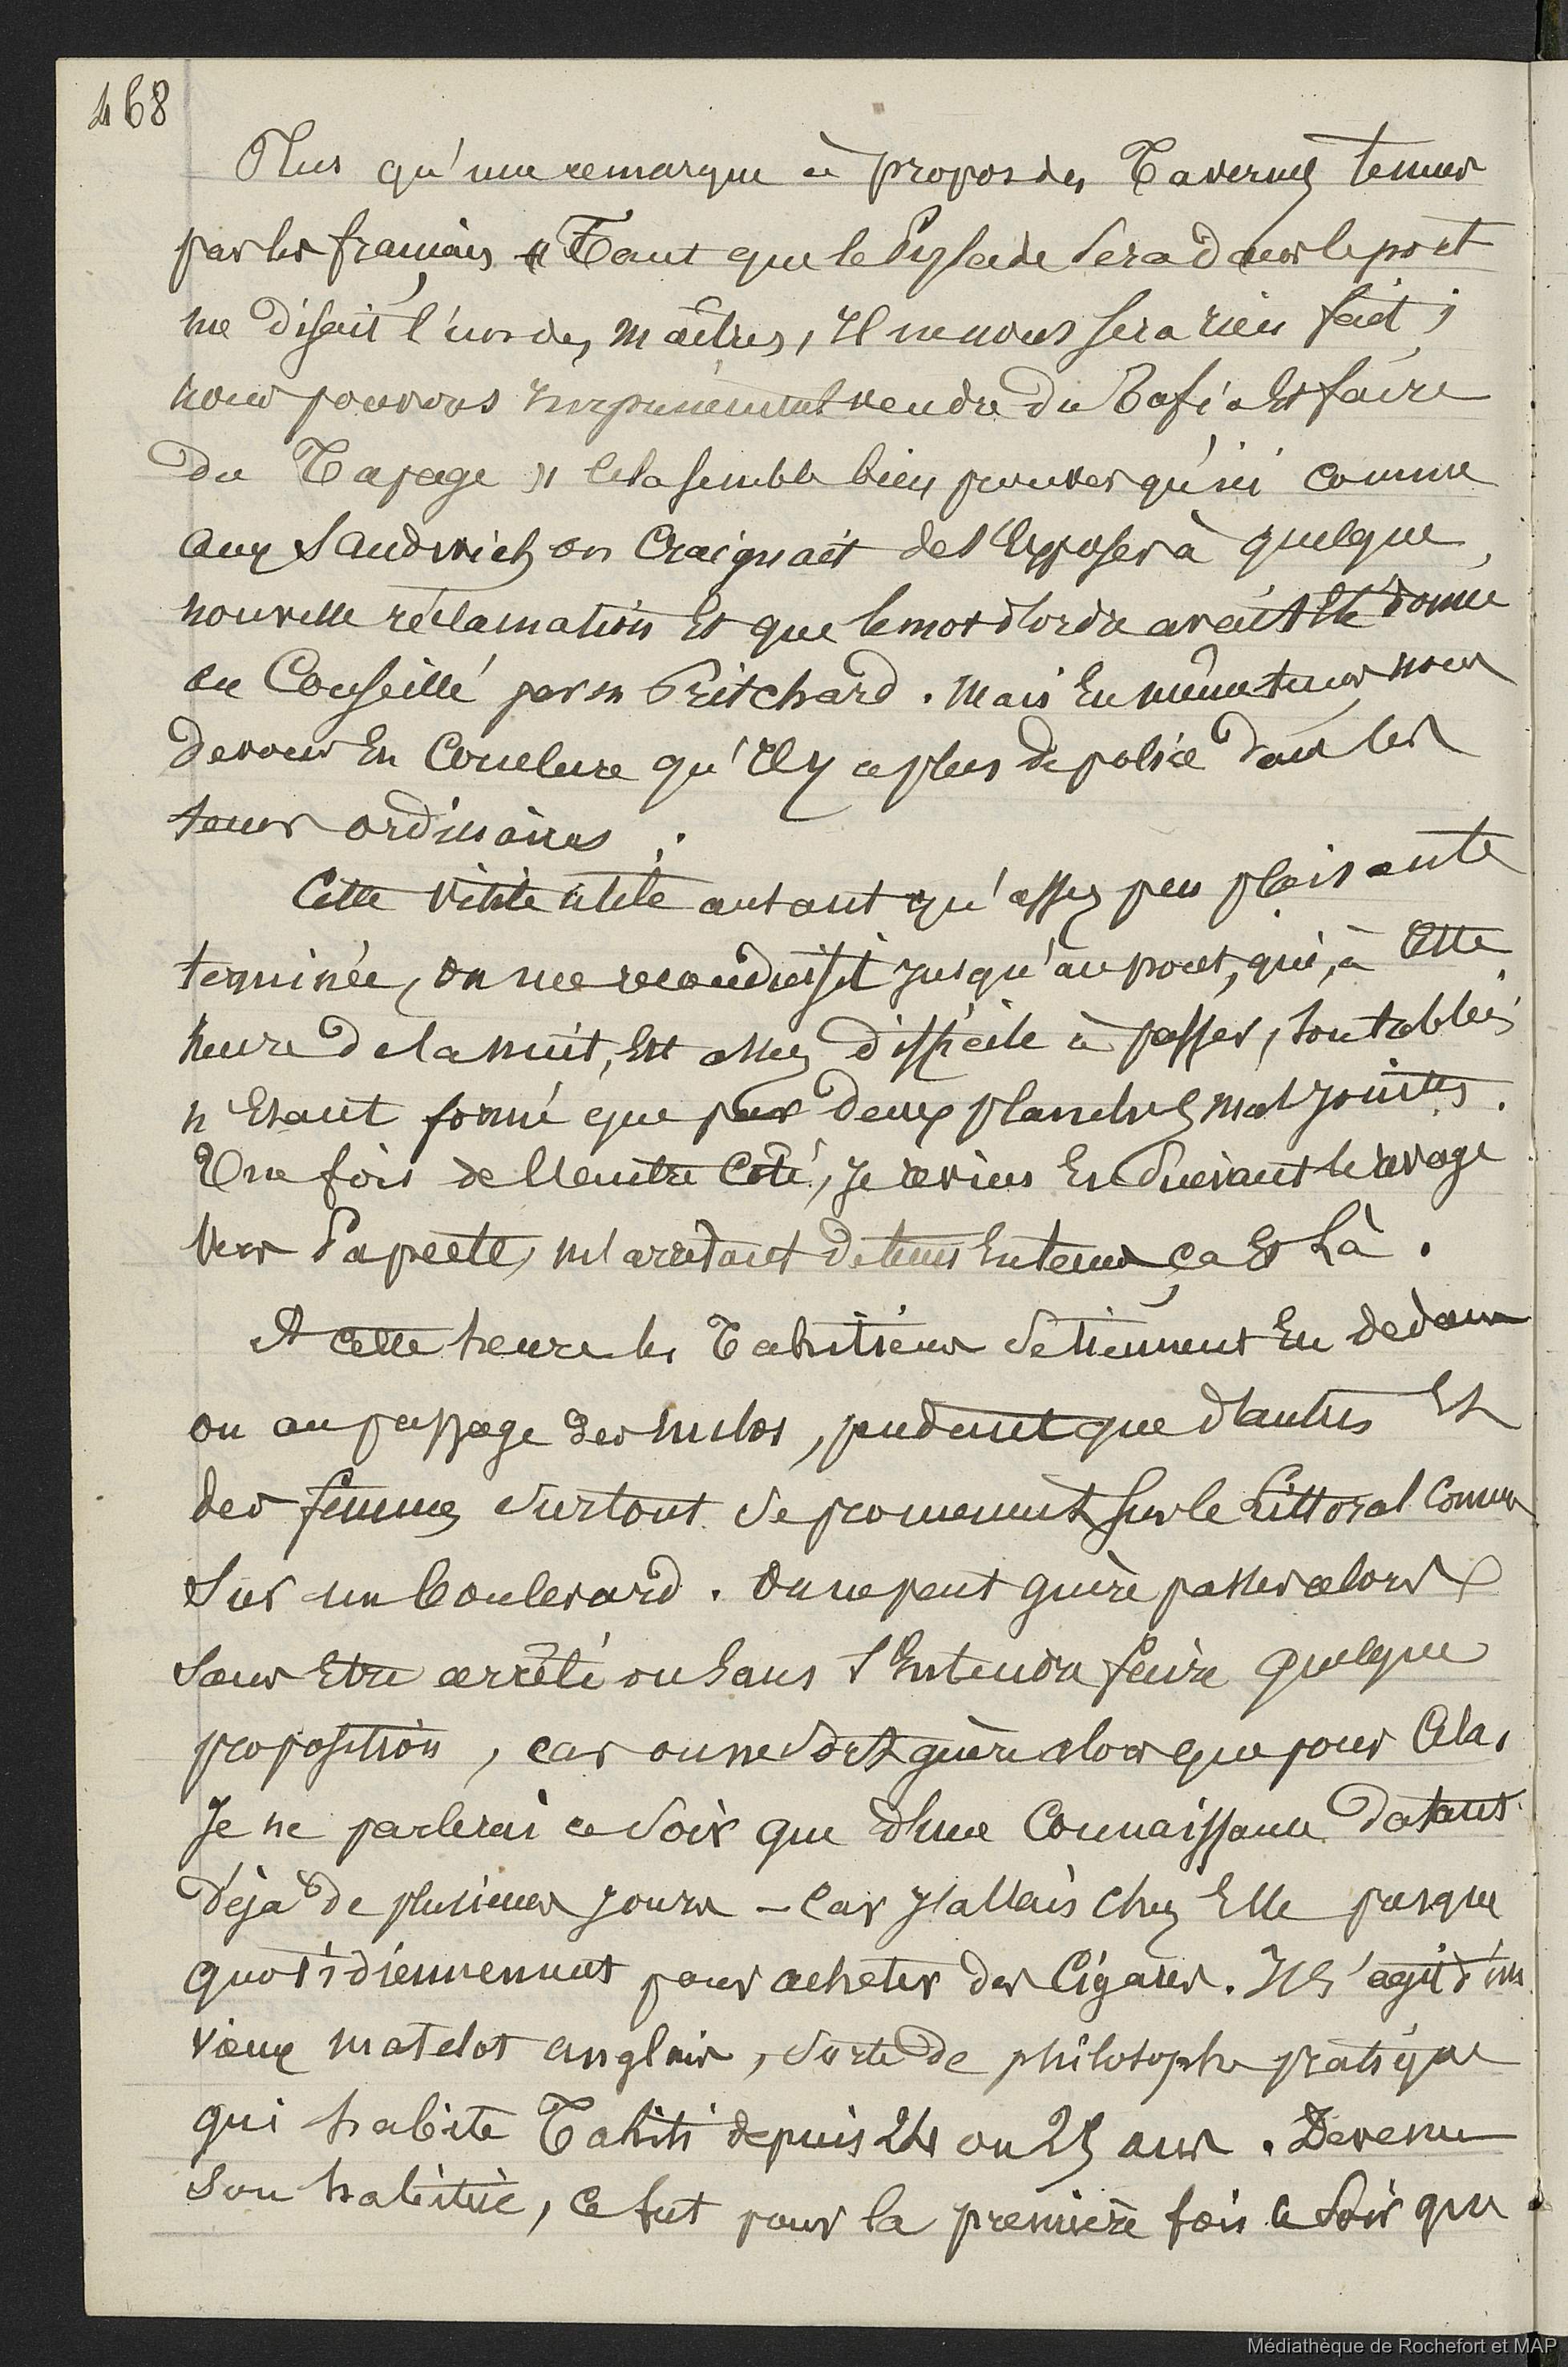 468
Plus qu'une remarque à propos des Tavernes tenues
par les français « Tant que le Pylade sera dans le port
me disait l'un des maîtres, Il ne nous sera rien fait ;
nous pouvons impunément vendre du Tafia Et faire
du Tapage » Cela semble bien prouver qu'ici comme
aux Sandwich on Craignait de s'Exposer à quelque
nouvelle réclamation Et que le mot d'ordre avait Eté donné
ou Conseillé par m Pritchard. Mais En même tems nous
devons En Conclure qu'Il y a plus de police dans les
tems ordinaires.
Cette visite utile autant qu'assez peu plaisante
terminée, on me reconduisit jusqu'au pont, qui, à Cette
heure de la nuit, Est assez difficile à passer, son tablier
n'Etant formé que par deux planches mal jointes.
Une fois de l'autre Côté, je revins En Suivant le rivage
vers Papeete, m'arrêtant de tems En tems çà Et Là.
A cette heure les Tahitiens se tiennent En dedans
ou au passage des milos, pendant que d'autres Et
des femmes surtout se promenent sur le Littoral Comme
sur un boulevard. On ne peut guère passer alors
sans Etre arrêté ou sans s'Entendre faire quelque
proposition, car on ne sort guère alors que pour Cela.
Je ne parlerai ce soir que d'une Connaissance datant
déjà de plusieurs jours - Car j'allais chez Elle presque
quotidiennement pour acheter des Cigares. Il s'agit d'un
vieux matelot anglais, sorte de philosophe pratique
qui habite Tahiti depuis 24 ou 25 ans. Devenu
son habitué, ce fut pour la première fois ce soir que
Médiathèque de Rochefort et MAP